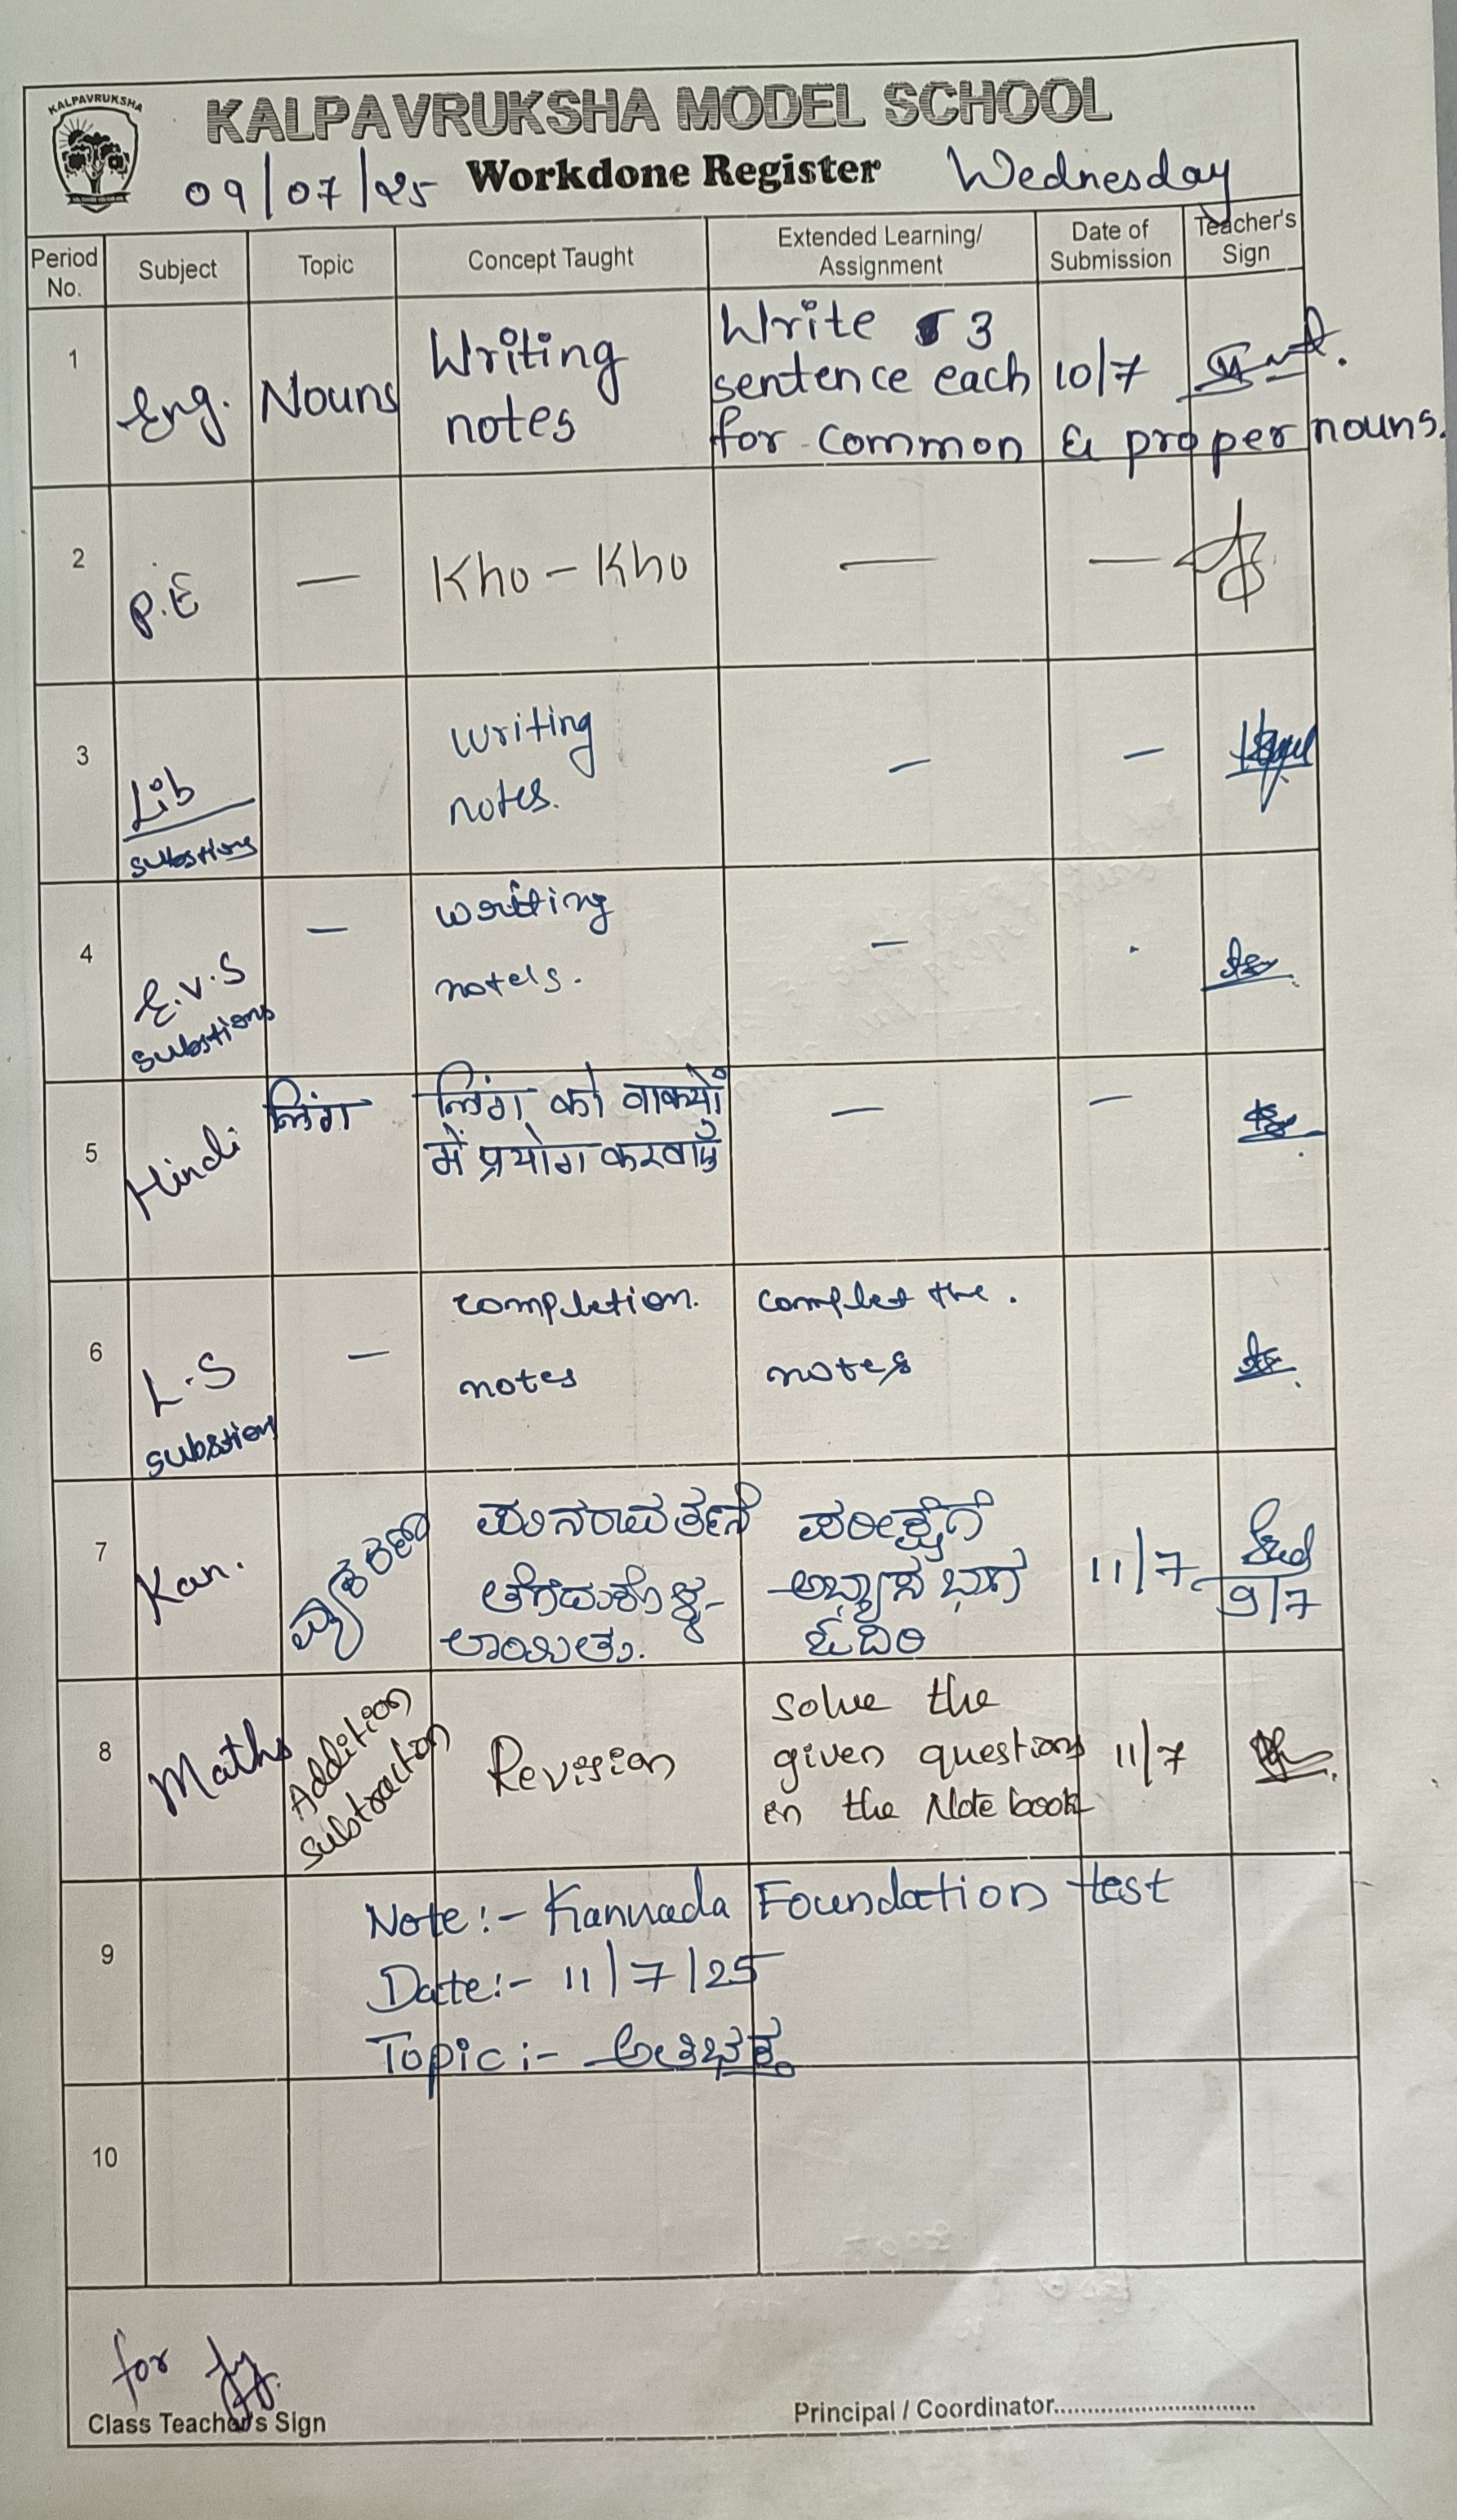 KALPAVRUKSHA
KALPAVRUKSHA MODEL SCHOOL
09/07/25 Workdone Register Wednesday
Period No. Subject Topic Concept Taught Extended Learning/ Assignment Date of Submission Teacher's Sign
1 Eng. Nouns Writing notes Write 3 sentence each for common & proper nouns. 10/7
2 P.E — Kho - Kho — —
3 Lib writing notes. — —
4 E.V.S — writing — .
5 Hindi लिंग लिंग को वाक्यों में प्रयोग करवाएँ — —
6 L.S — completion. notes complet the. notes
7 Kan. ವ್ಯಾಕರಣ ಪುನರಾವರ್ತನೆ ತೆಗೆದುಕೊಳ್ಳ- ಲಾಯಿತು. ಪರೀಕ್ಷೆಗೆ ಅಭ್ಯಾಸ ಭಾಗ ಓದಿರಿ 11/7 9/7
8 Maths Addition substraction Revision solve the given questions in the Note book 11/7
9 Note:- Kannada Foundation test
Date:- 11/7/25
Topic:-
10
for
Class Teacher's Sign
Principal / Coordinator..............................